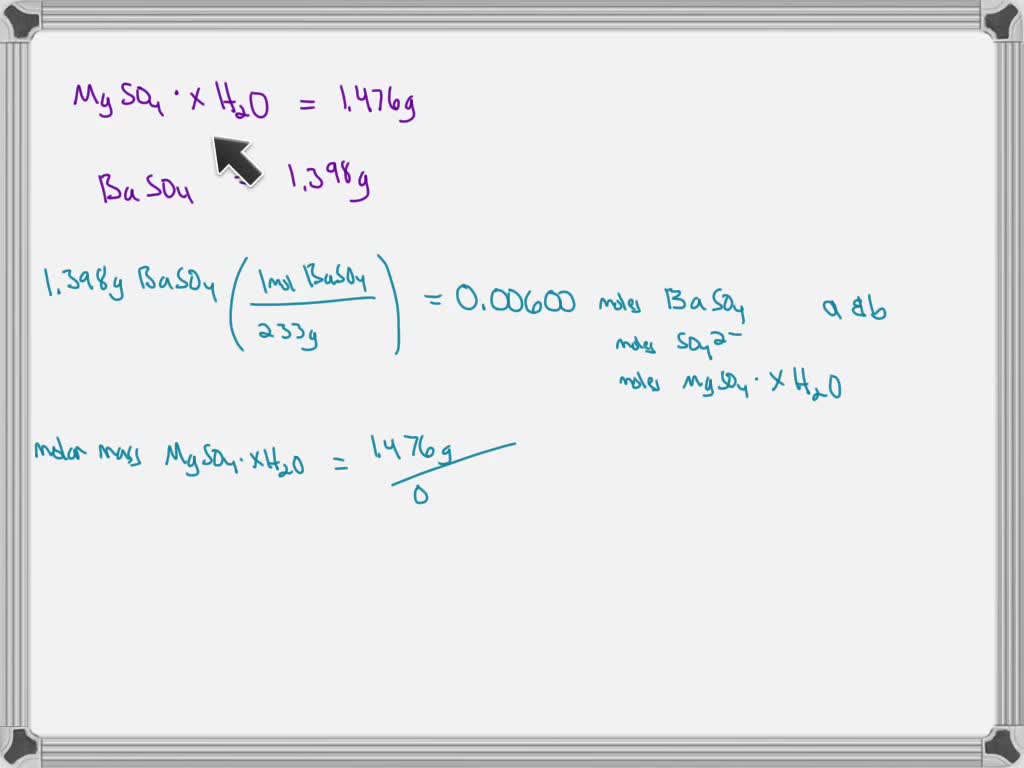 MgSO₄ · x H₂O = 1.476g
BaSO₄ = 1.398g
1.398g BaSO₄ (1 mol BaSO₄ / 233g) = 0.00600 moles BaSO₄ a &b
moles SO₄²⁻
moles MgSO₄ · x H₂O
molar mass MgSO₄ · xH₂O = 1.476g / 0